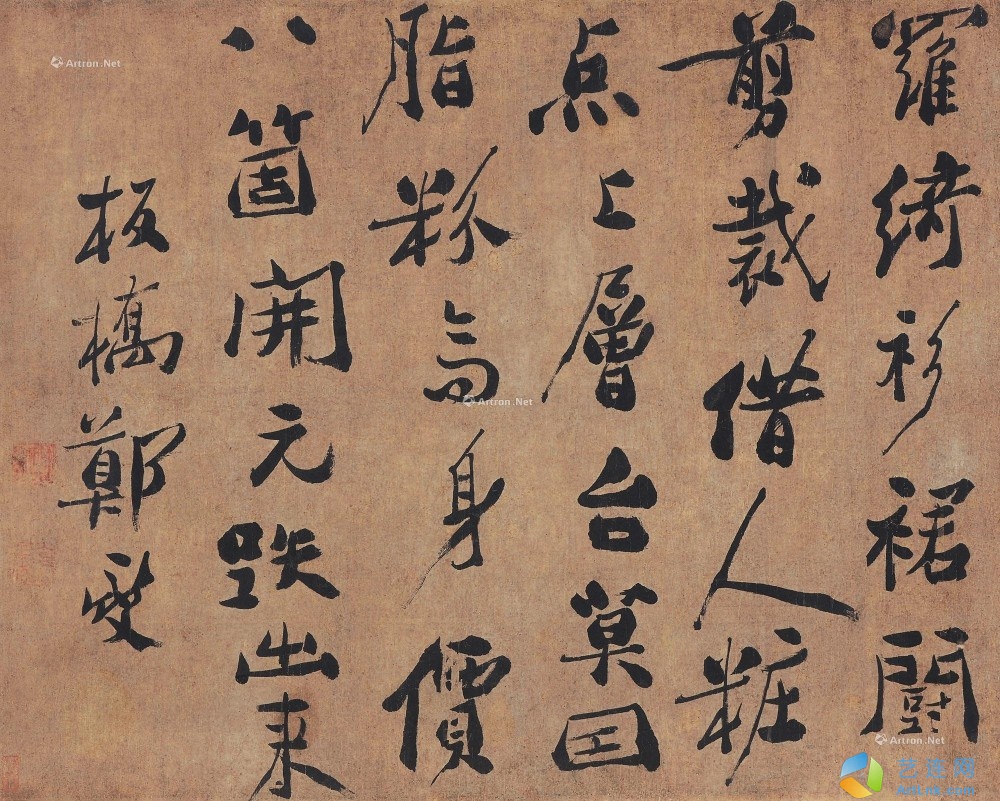 羅綺衫裙鬪
剪裁借人粧
点上層台莫因
脂粉高身價
八箇開元跌出来
板橋鄭燮
Artron.Net
Artron.Net
Artron.Net
艺连网